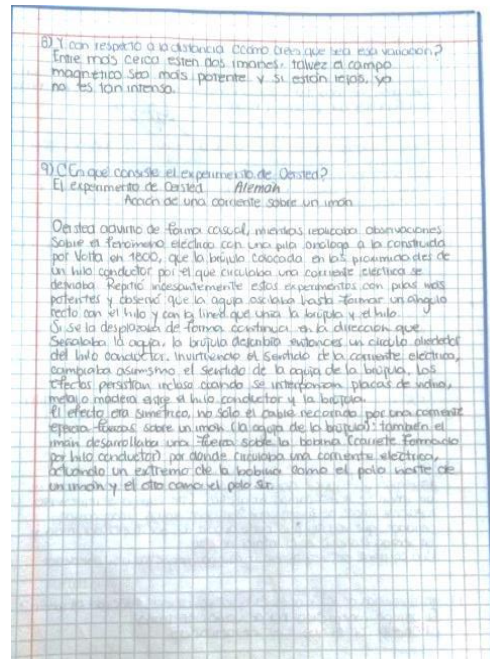 8) Y con respecto a la distancia ¿Como crees que sea esa variacion?
Entre más cerca esten dos imanes, talvez el campo
magnetico sea más potente y si están lejos, ya
no es tan intenso.
9) ¿En qué consiste el experimento de Oersted?
El experimento de Oersted Alemán
Acción de una corriente sobre un imán
Oersted advirtio de forma casual, mientras replicaba observaciones
sobre el fenómeno eléctrico con una pila análoga a la construida
por Volta en 1800, que la brújula colocada en las proximidades de
un hilo conductor por el que circulaba una corriente electrica se
desviaba. Repitió incesantemente estos experimentos con pilas más
potentes y observó que la aguja oscilaba hasta formar un ángulo
recto con el hilo y con la linea que unia la brújula y el hilo.
Si se la desplazaba de forma continua en la direccion que
señalaba la aguja, la brújula describia entonces un circulo alrededor
del hilo conductor. Invirtiendo el sentido de la corriente eléctrica,
cambiaba asimismo el sentido de la aguja de la brújula, Los
efectos persistian incluso cuando se interponian placas de vidrio,
metal o madera entre el hilo conductor y la brújula.
El efecto era simétrico, no solo el cable recorrido por una corriente
ejercia fuerzas sobre un imán (la aguja de la brújula): también el
imán desarrollaba una fuerza sobre la bobina (carrete formado
por hilo conductor) por donde circulaba una corriente electrica,
actuando un extremo de la bobina como el polo norte de
un imán y el otro como el polo sur.